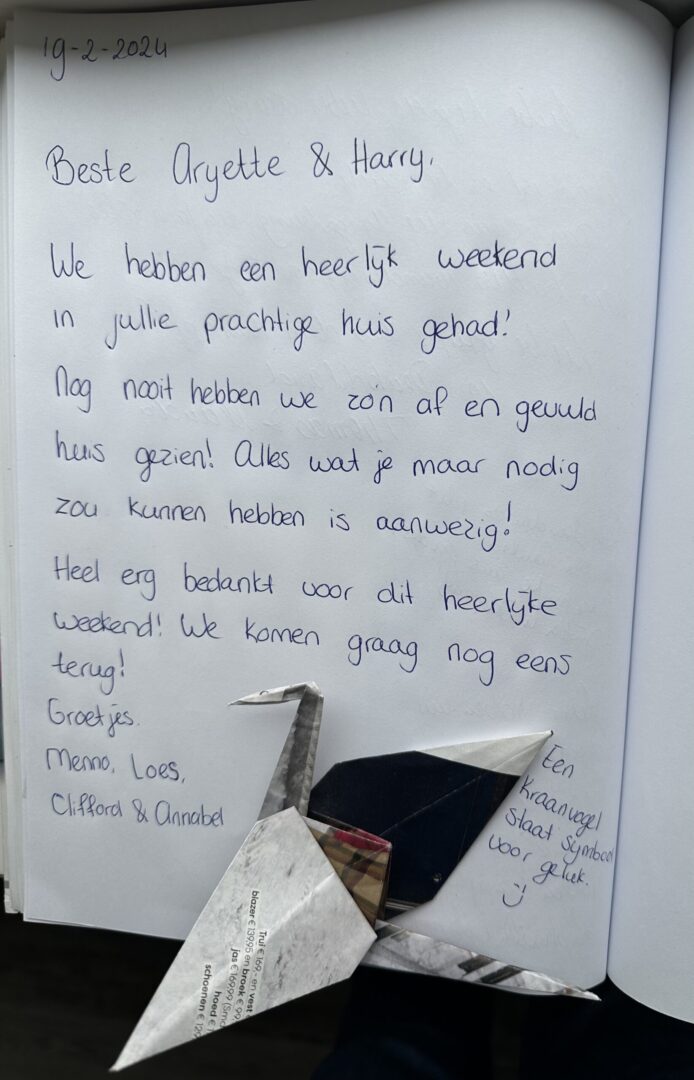 19-2-2024
Beste Aryette & Harry,
We hebben een heerlijk weekend
in jullie prachtige huis gehad!
Nog nooit hebben we zo'n af en gevuld
huis gezien! Alles wat je maar nodig
zou kunnen hebben is aanwezig!
Heel erg bedankt voor dit heerlijke
weekend! We komen graag nog eens
terug!
Groetjes.
Menno, Loes,
Clifford & Annabel
Een
kraanvogel
staat symbool
voor geluk.
:)
Trui € 169,- en vest
blazer € 139,95 en broek € 99
jas € 169,99
hoed €
schoenen € 129